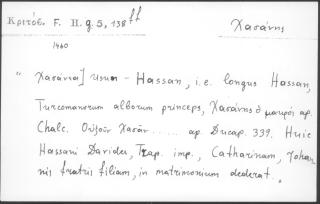 Κριτόβ. F. H. g. 5, 138 ff
Χασάνης
1460
" Χασάνια] Usun - Hassan, i.e. longus Hassan,
Turcomanorum alborum princeps, Χασάνης ὁ μακρός ap.
Chalc. Οὐζοῦν Χασάν ...... ap. Ducap. 339. Huic
Hassani Davides, Trap. imp., Catharinam, Johan
nis fratris filiam, in matrimonium dederat.